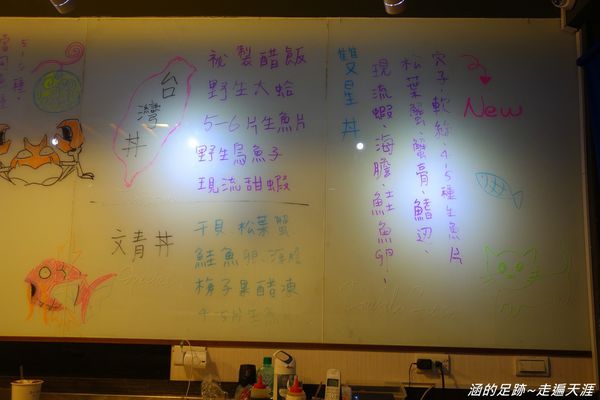 台灣丼
祕製醋飯
野生大蛤
5-6片生魚片
野生烏魚子
現流甜蝦
文青丼
干貝、松葉蟹
鮭魚卵、海膽
梅子果醋凍
4-5片生魚
雙星丼
New
穴子、軟絲、4-5種生魚片
松葉蟹、蟹膏、鰭邊、
現流蝦、海膽、鮭魚卵、
涵的足跡~走遍天涯